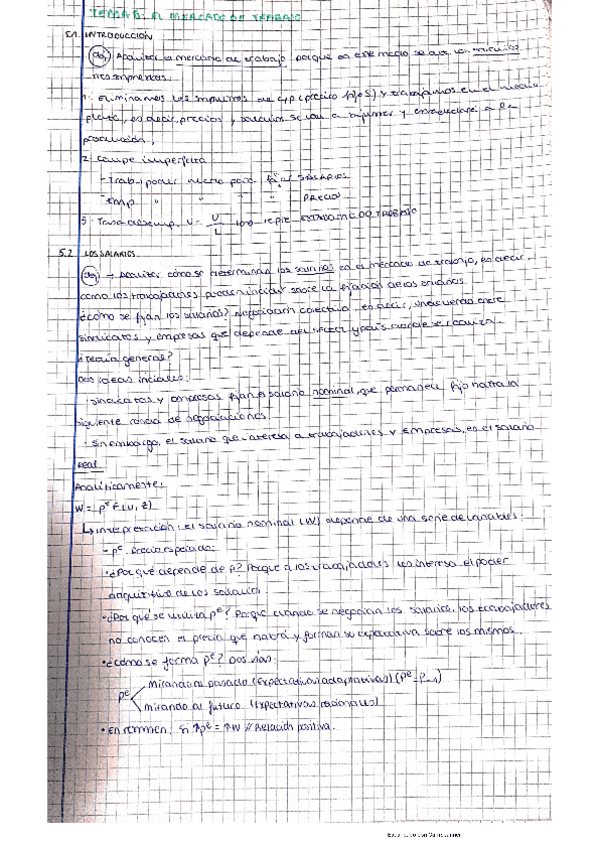 TEMA 5: EL MERCADO DE TRABAJO
5.1. INTRODUCCIÓN
Obj Analizar el mercado de trabajo porque en este medio se dan los
1. Eliminamos los supuestos de C/P (precios fijos) y trabajamos en el medio
plazo, es decir, precios y salarios se van a ajustar y
producción,
2. Compe imperfecta
- Trab. poder para fijar SALARIOS
- Emp " " " PRECIOS
3. Tasa desemp. u = U/L 100 repre ESTADO MERCADO TRABAJO
5.2 LOS SALARIOS.
Obj → Analizar cómo se determinan los salarios en el mercado de trabajo, es decir,
como los trabajadores pueden incidir sobre la fijación de los salarios.
¿Cómo se fijan los salarios? Negociación colectiva, es decir, un acuerdo entre
sindicatos y empresas que depende del sector y país donde se realiza.
¿Teoría general?
Dos ideas iniciales:
· Sindicatos y empresas fijan el salario nominal, que permanece fijo hasta la
siguiente ronda de negociaciones.
· Sin embargo, el salario que interesa a trabajadores y empresas, es el salario
real
Analíticamente:
W = Pe F(u, z)
↳ Interpretación: el salario nominal (W) depende de una serie de variables:
- Pe: Precio esperado:
· ¿Por qué depende de P? Porque a los trabajadores les interesa el poder
adquisitivo de los salarios
· ¿Por qué se utiliza Pe? Porque cuando se negocian los salarios, los trabajadores
no conocen el precio que habrá y forman su expectativa sobre los mismos.
· ¿Cómo se forma Pe? Dos vías:
Pe mirando al pasado (Expectativas adaptativas) (Pe = P-1)
mirando al futuro (Expectativas racionales)
· En resumen: si ↑Pe = ↑W // Relación positiva.
Escaneado con CamScanner